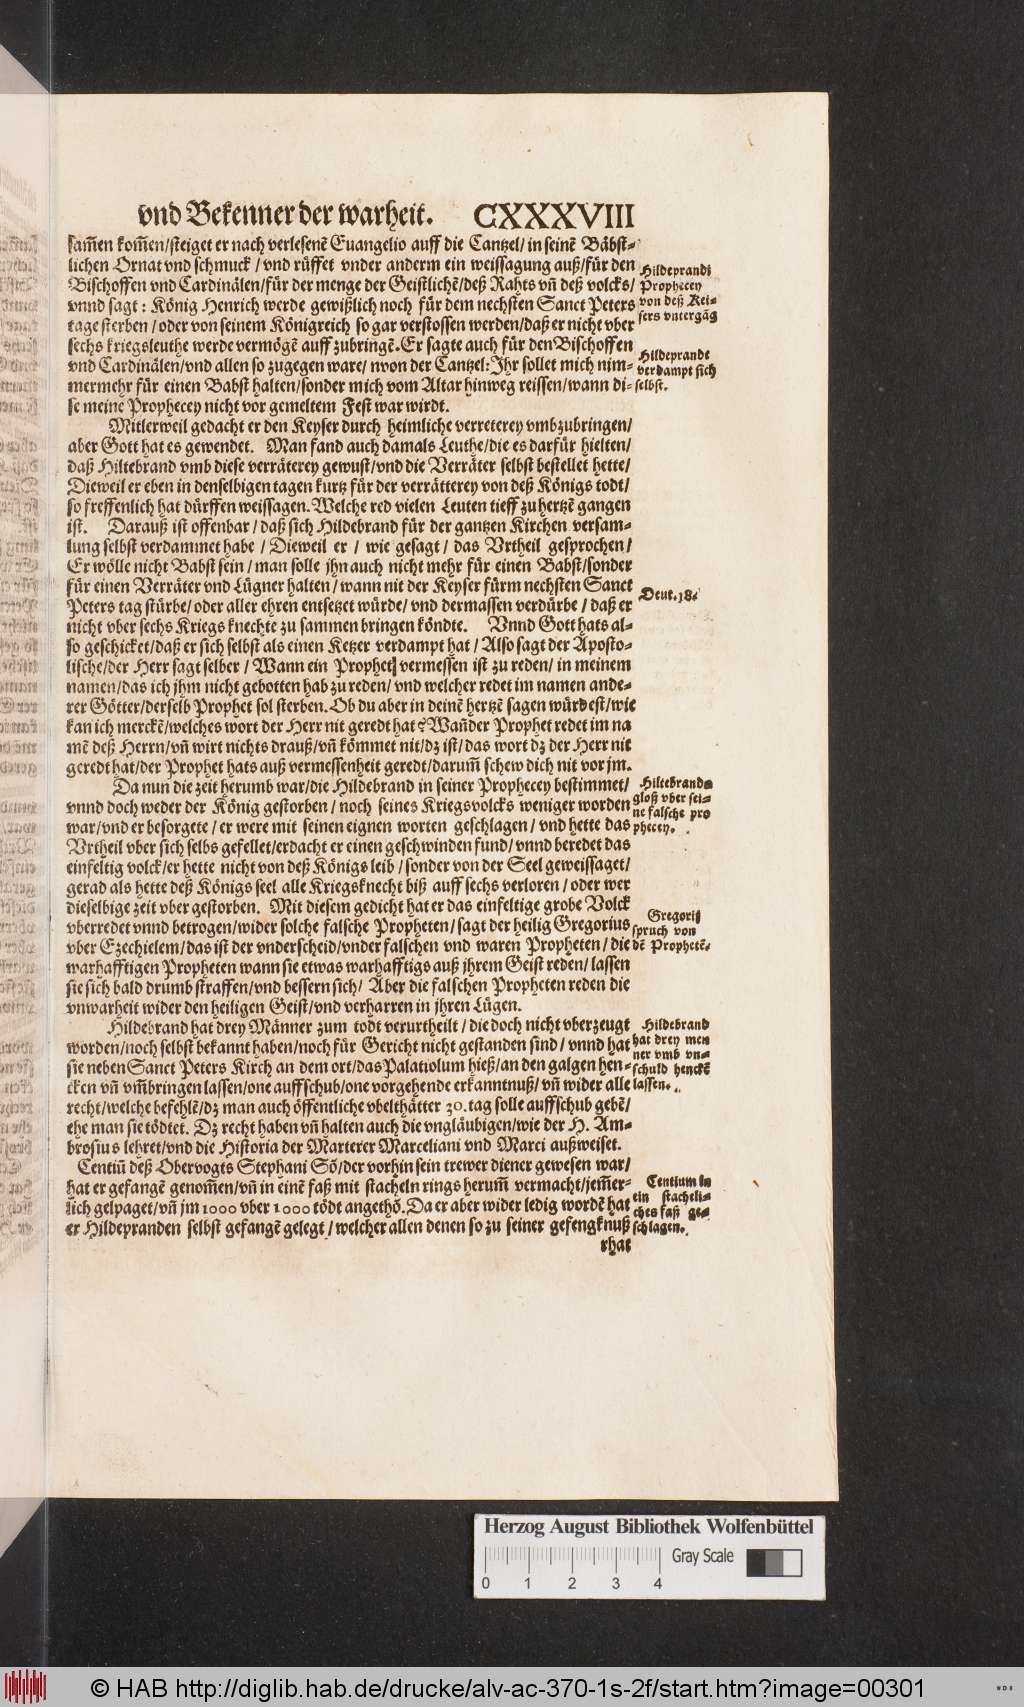 vnd Bekenner der warheit. CXXXVIII
sam̃en kom̃en/steiget er nach verlesenẽ Euangelio auff die Cantzel/in seinẽ Bäbst-
lichen Ornat vnd schmuck/vnd rüffet vnder anderm ein weissagung auß/für den
Bischoffen vnd Cardinälen/für der menge der Geistlichẽ/deß Rahts vñ deß volcks/
vnnd sagt: König Henrich werde gewißlich noch für dem nechsten Sanct Peters
tage sterben/oder von seinem Königreich so gar verstossen werden/daß er nicht vber
sechs kriegsleuthe werde vermögẽ auff zubringẽ. Er sagte auch für den Bischoffen
vnd Cardinälen/vnd allen so zugegen ware/nvon der Cantzel: Ihr sollet mich nim-
mermehr für einen Babst halten/sonder mich vom Altar hinweg reissen/wann di-
se meine Prophecey nicht vor gemeltem Fest war wirdt.
Hildeprands
Prophecey
von deß Kei-
sers vntergãg
Hildeprandt
verdampt sich
selbst.
Mitlerweil gedacht er den Keyser durch heimliche verreterey vmbzubringen/
aber Gott hat es gewendet. Man fand auch damals Leuthe/die es darfür hielten/
daß Hiltebrand vmb diese verräterey gewust/vnd die Verräter selbst bestellet hette/
Dieweil er eben in denselbigen tagen kurtz für der verrätterey von deß Königs todt/
so freffenlich hat dürffen weissagen. Welche red vielen Leuten tieff zu hertzẽ gangen
ist. Darauß ist offenbar/daß sich Hildebrand für der gantzen Kirchen versam-
lung selbst verdammet habe/Dieweil er/wie gesagt/das Vrtheil gesprochen/
Er wölle nicht Babst sein/man solle jhn auch nicht mehr für einen Babst/sonder
für einen Verräter vnd Lügner halten/wann nit der Keyser fürm nechsten Sanct
Peters tag stürbe/oder aller ehren entsetzet würde/vnd dermassen verdürbe/daß er
nicht vber sechs Kriegs knechte zu sammen bringen köndte. Vnnd Gott hats al-
so geschicket/daß er sich selbst als einen Ketzer verdampt hat/Also sagt der Aposto-
lische/der Herr sagt selber/Wann ein Prophet vermessen ist zu reden/in meinem
namen/das ich jhm nicht gebotten hab zu reden/vnd welcher redet im namen ande-
rer Götter/derselb Prophet sol sterben. Ob du aber in deinẽ hertzẽ sagen würdest/wie
kan ich merckẽ/welches wort der Herr nit geredt hat? Wañ der Prophet redet im na
mẽ deß Herrn/vñ wirt nichts drauß/vñ kömmet nit/dz ist/das wort dz der Herr nit
geredt hat/der Prophet hats auß vermessenheit geredt/darum̃ schew dich nit vor jm.
Deut. 18.
Da nun die zeit herumb war/die Hildebrand in seiner Prophecey bestimmet/
vnnd doch weder der König gestorben/noch seines Kriegsvolcks weniger worden
war/vnd er besorgete/er were mit seinen eignen worten geschlagen/vnd hette das
Vrtheil vber sich selbs gefellet/erdacht er einen geschwinden fund/vnnd beredet das
einfeltig volck/er hette nicht von deß Königs leib/sonder von der Seel geweissaget/
gerad als hette deß Königs seel alle Kriegsknecht biß auff sechs verloren/oder wer
dieselbige zeit vber gestorben. Mit diesem gedicht hat er das einfeltige grobe Volck
vberredet vnnd betrogen/wider solche falsche Propheten/sagt der heilig Gregorius
vber Ezechielem/das ist der vnderscheid/vnder falschen vnd waren Propheten/die
warhafftigen Propheten wann sie etwas warhafftigs auß jhrem Geist reden/lassen
sie sich bald drumb straffen/vnd bessern sich/Aber die falschen Propheten reden die
vnwarheit wider den heiligen Geist/vnd verharren in jhren Lügen.
Hiltebrands
gloß vber sei-
ne falsche pro
phecey.
Gregorij
spruch von
dẽ Prophetẽ.
Hildebrand hat drey Männer zum todt verurtheilt/die doch nicht vberzeugt
worden/noch selbst bekannt haben/noch für Gericht nicht gestanden sind/vnnd hat
sie neben Sanct Peters Kirch an dem ort/das Palatiolum hieß/an den galgen hen-
cken vñ vm̃bringen lassen/one auffschub/one vorgehende erkanntnuß/vñ wider alle
recht/welche befehlẽ/dz man auch öffentliche vbelthätter 30. tag solle auffschub gebẽ/
ehe man sie tödtet. Dz recht haben vñ halten auch die vngläubigen/wie der H. Am-
brosius lehret/vnd die Historia der Marterer Marceliani vnd Marci außweiset.
Hildebrand
hat drey men
ner vmb vn-
schuld henckẽ
lassen.
Centiũ deß Obervogts Stephani Sö/der vorhin sein trewer diener gewesen war/
hat er gefangẽ genom̃en/vñ in einẽ faß mit stacheln rings herum̃ vermacht/jem̃er-
lich gelpaget/vñ jm 1000 vber 1000 tödt angethõ. Da er aber wider ledig wordẽ hat
er Hildepranden selbst gefangẽ gelegt/welcher allen denen so zu seiner gefengknuß
Centium in
ein stacheli-
ches faß ge-
schlagen.
rhat
Herzog August Bibliothek Wolfenbüttel
Gray Scale
0 1 2 3 4
© HAB http://diglib.hab.de/drucke/alv-ac-370-1s-2f/start.htm?image=00301